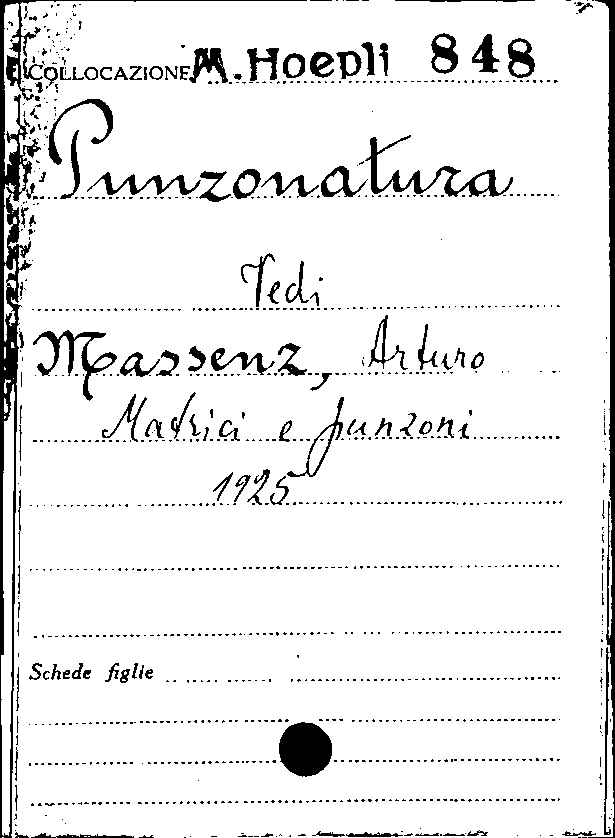 COLLOCAZIONE M. Hoepli 848
Punzonatura
Vedi
Massenz, Arturo
Matrici e punzoni
1925
Schede figlie